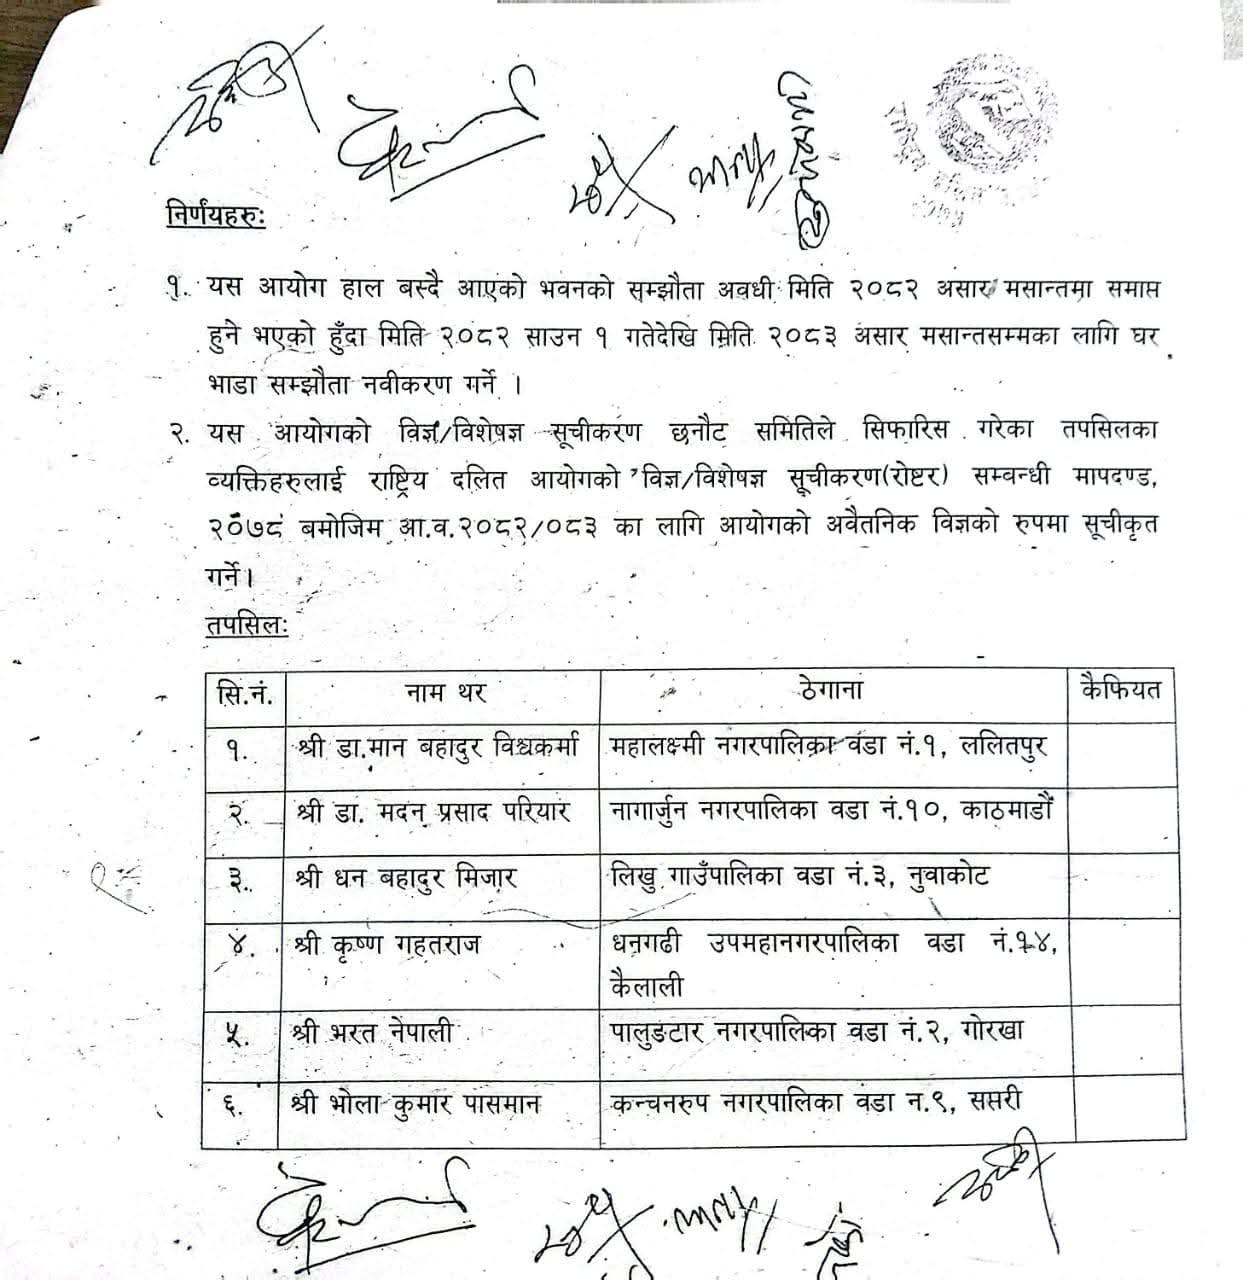 निर्णयहरुः
१. यस आयोग हाल बस्दै आएको भवनको सम्झौता अवधी मिति २०८२ असार मसान्तमा समाप्त
हुने भएको हुँदा मिति २०८२ साउन १ गतेदेखि मिति २०८३ असार मसान्तसम्मका लागि घर
भाडा सम्झौता नवीकरण गर्ने ।
२. यस आयोगको विज्ञ/विशेषज्ञ सूचीकरण छनौट समितिले सिफारिस गरेका तपसिलका
व्यक्तिहरुलाई राष्ट्रिय दलित आयोगको विज्ञ/विशेषज्ञ सूचीकरण(रोष्टर) सम्वन्धी मापदण्ड,
२०७८ बमोजिम आ.व.२०८२/०८३ का लागि आयोगको अवैतनिक विज्ञको रुपमा सूचीकृत
गर्ने।
तपसिलः
सि.नं. नाम थर ठेगाना कैफियत
१. श्री डा.मान बहादुर विश्वकर्मा महालक्ष्मी नगरपालिका वडा नं.१, ललितपुर
२. श्री डा. मदन प्रसाद परियार नागार्जुन नगरपालिका वडा नं.१०, काठमाडौं
३. श्री धन बहादुर मिजार लिखु गाउँपालिका वडा नं.३, नुवाकोट
४. श्री कृष्ण गहतराज धनगढी उपमहानगरपालिका वडा नं.१४,
कैलाली
५. श्री भरत नेपाली पालुङटार नगरपालिका वडा नं.२, गोरखा
६. श्री भोला कुमार पासमान कन्चनरुप नगरपालिका वडा न.९, सप्तरी